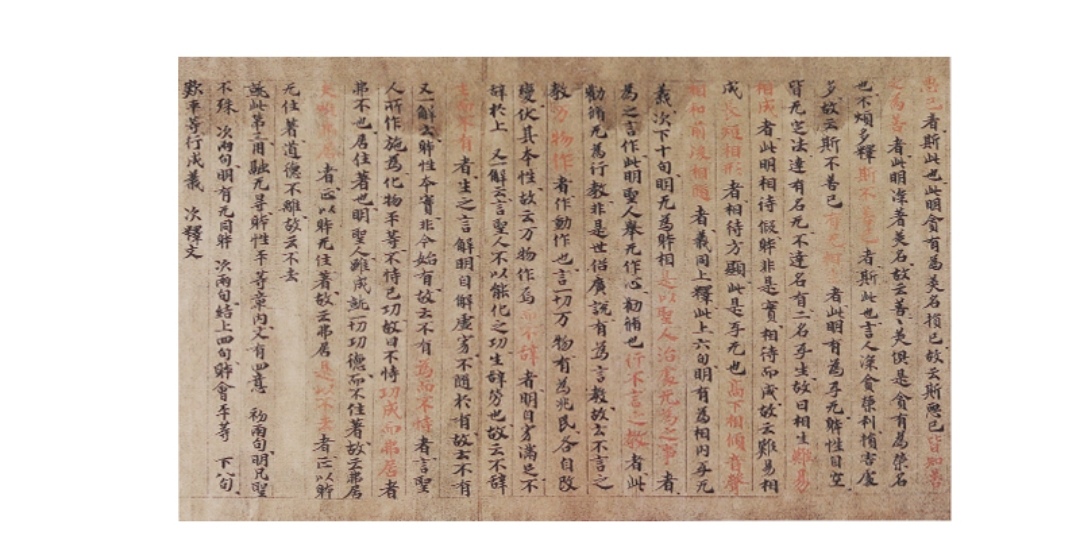 惡已者斯此也此明貪有為美名損已故云斯惡已皆知善
之為善者此明深著美名故云善善美俱是貪有為榮名
也不煩多釋斯不善已者斯此也言人深貪榮利損害處
多故云斯不善已有无相生者此明有為孚无躰性自空
皆无定法達有名无不達名有二名孚生故曰相生難易
相成者此明相待假躰非是實相待而成故云難易相
成長短相形者相待方顯此是孚无也高下相傾音聲
相和前後相隨者義同上釋此上六句明有為相内孚无
義次下十句明无為躰相是以聖人治處无為之事者
為之言作此明聖人舉无作心勸脩也行不言之教者此
勸脩无為行教非是世俗廣說有為言教故云不言之
教万物作者作動作也言一切万物有為兆民各自改
變伏其本性故云万物作焉而不辞者明自穷滿足不
辞於上又一解云言聖人不以能化之功生辞劳也故云不辞
生而不有者生之言解明自解虚穷不随於有故云不有
又一解云躰性本實非今始有故云不有為而不恃者言聖
人所作施為化物平等不恃已功故曰不恃功成而弗居者
弗不也居住著也明聖人雖成就一切功德而不住著故云弗居
夫唯弗居者正以躰无住著故云弗居是以不去者正以躰
无住著道德不離故云不去
就此第二用融无尋躰性平等章内文有四意 初兩句明凡聖
不殊 次兩句明有无同躰 次兩句結上四句躰會平等 下八句
歎平等行成義 次釋文